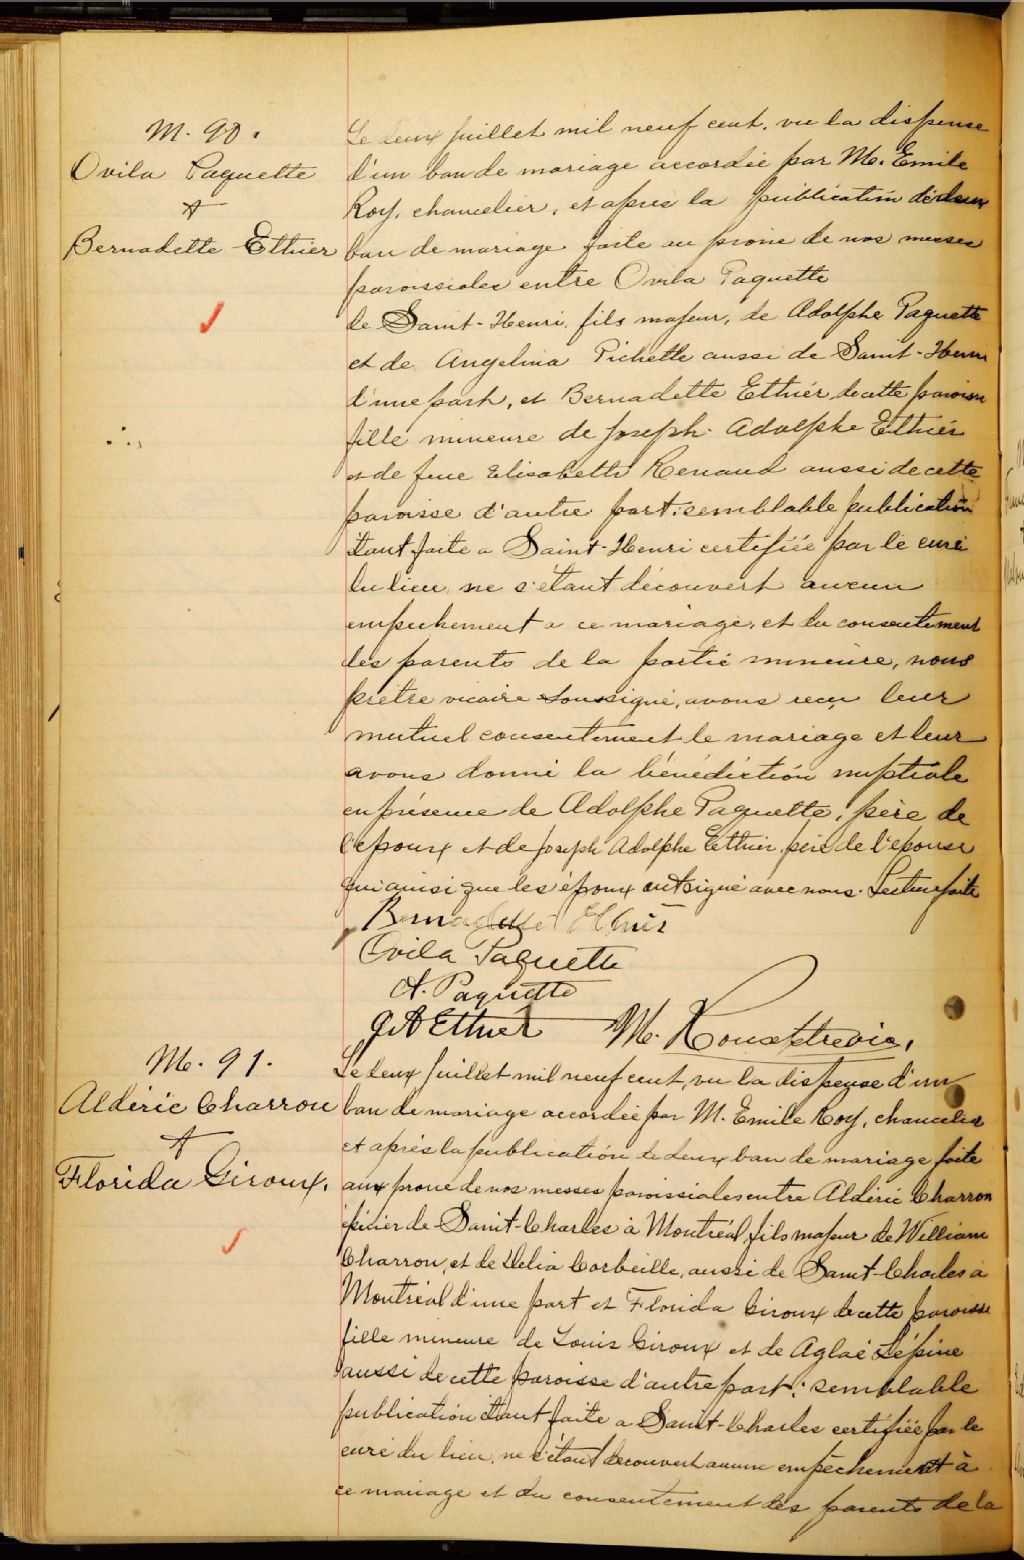 M. 90.
Ovila Paquette
+
Bernadette Ethier
Le deux juillet mil neuf cent, vu la dispense
d'un ban de mariage accordée par M. Emile
Roy, chancelier, et après la publication de deux
ban de mariage faite au prône de nos messes
paroissiales entre Ovila Paquette
de Saint-Henri, fils majeur, de Adolphe Paquette
et de Angelina Pichette aussi de Saint-Henri
d'une part, et Bernadette Ethier de cette paroisse
fille mineure de Joseph Adolphe Ethier
et de feue Elisabeth Renaud aussi de cette
paroisse d'autre part: semblable publication
étant faite a Saint-Henri certifiée par le curé
du lieu, ne s'étant découvert aucun
empechement a ce mariage, et du consentement
des parents de la partie mineure, nous
prêtre vicaire soussigné, avons reçu leur
mutuel consentement le mariage et leur
avons donné la bénédiction nuptiale
en présence de Adolphe Paquette, père de
l'époux et de Joseph Adolphe Ethier père de l'épouse
qui ainsi que les époux ont signé avec nous. Lecture faite
Bernadette Ethier
Ovila Paquette
A. Paquette
J A Ethier M.
M. 91.
Aldéric Charron
+
Florida Giroux.
Le deux juillet mil neuf cent, vu la dispense d'un
ban de mariage accordée par M. Emile Roy, chancelier
et après la publication de deux ban de mariage faite
aux prone de nos messes paroissiales entre Aldéric Charron
épicier de Saint-Charles à Montréal, fils majeur de William
Charron, et de Délia Corbeille, aussi de Saint-Charles à
Montréal d'une part et Florida Giroux de cette paroisse
fille mineure de Louis Giroux et de Aglaé Lépine
aussi de cette paroisse d'autre part: semblable
publication étant faite a Saint-Charles certifiée par le
curé du lieu, ne s'étant découvert aucun empêchement à
ce mariage et du consentement des parents de la